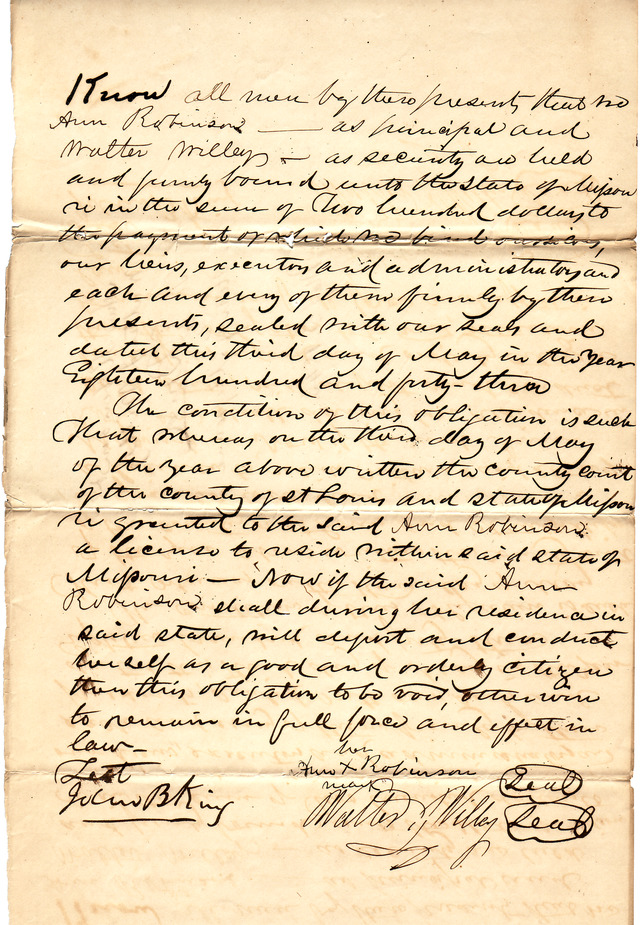 Know all men by these presents, that we
Ann Robinson — as principal and
Walter Willey — as security are held
and firmly bound unto the State of Missou
ri in the sum of Two hundred dollars, to
the payment of which we bind ourselves,
our heirs, executors and administrators, and
each and every of them firmly by these
presents, sealed with our seals and
dated this third day of May in the Year
Eighteen hundred and forty-three
The condition of this obligation is such
that whereas on the third day of May
of the year above written the county court
of the county of St Louis and state of Missou
ri granted to the said Ann Robinson
a license to reside within said state of
Missouri — Now if the said Ann
Robinson shall during her residence in
said state, will deport and conduct
herself as a good and orderly citizen
then this obligation to be void, otherwise
to remain in full force and effect in
law —
her
Test Ann X Robinson Seal
mark
John B King Walter Willey Seal